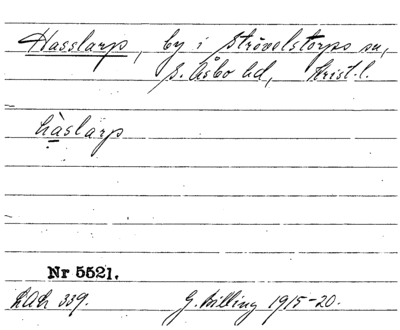 Hasslarp, by i Strövelstorps sn,
S. Åsbo hd, Krist. l.
hàslarp
Nr 5521.
LAL 339. G. Billing 1915-20.